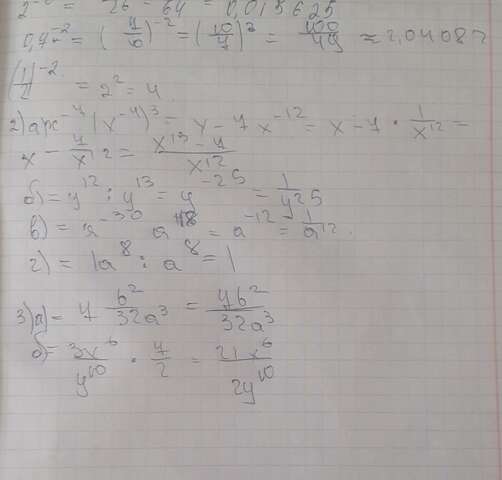 2⁻⁶ = 1/26 = 64 = 0,015625
0,7⁻² = (7/10)⁻² = (10/7)² = 100/49 ≈ 2,04082
(1/2)⁻² = 2² = 4
2) a) x⁻⁷ (x⁻⁴)³ = x - 7 x⁻¹² = x - 7 · 1/x¹² =
x - 7/x¹² = x¹³ - 7/x¹²
б) = y¹² : y¹³ = y⁻²⁵ = 1/y25
в) = a⁻³⁰ a¹⁸ = a⁻¹² = 1/a¹².
г) = 1a⁸ : a⁸ = 1
3) а) = 4 b²/32a³ = 4b²/32a³
б) = 3x⁶/y¹⁰ · 7/2 = 21x⁶/2y¹⁰